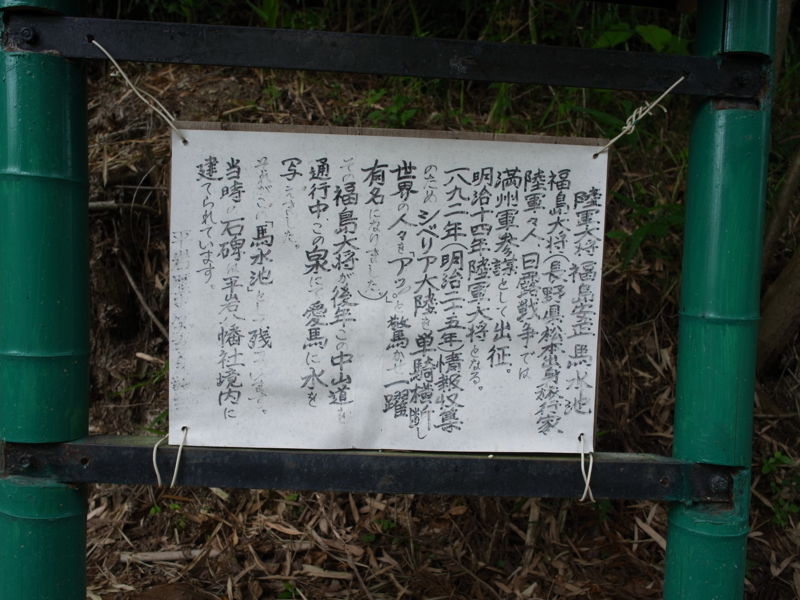 陸軍大将 福島安正 馬水池
福島大将(長野県松本出身旅行家、
陸軍々人、日露戦争では
満州軍参謀として出征。
明治十四年陸軍大将となる。
八九二年(明治二十五年情報収集
のためシベリア大陸を単騎横断し
世界の人々をアッと驚かせ一躍
有名になりました)
その福島大将が後年この中山道を
通行中この泉にて愛馬に水を
写えました。
それがこの「馬水池」として残っています。
当時の石碑は平岩八幡社境内に
建てられています。
平岩